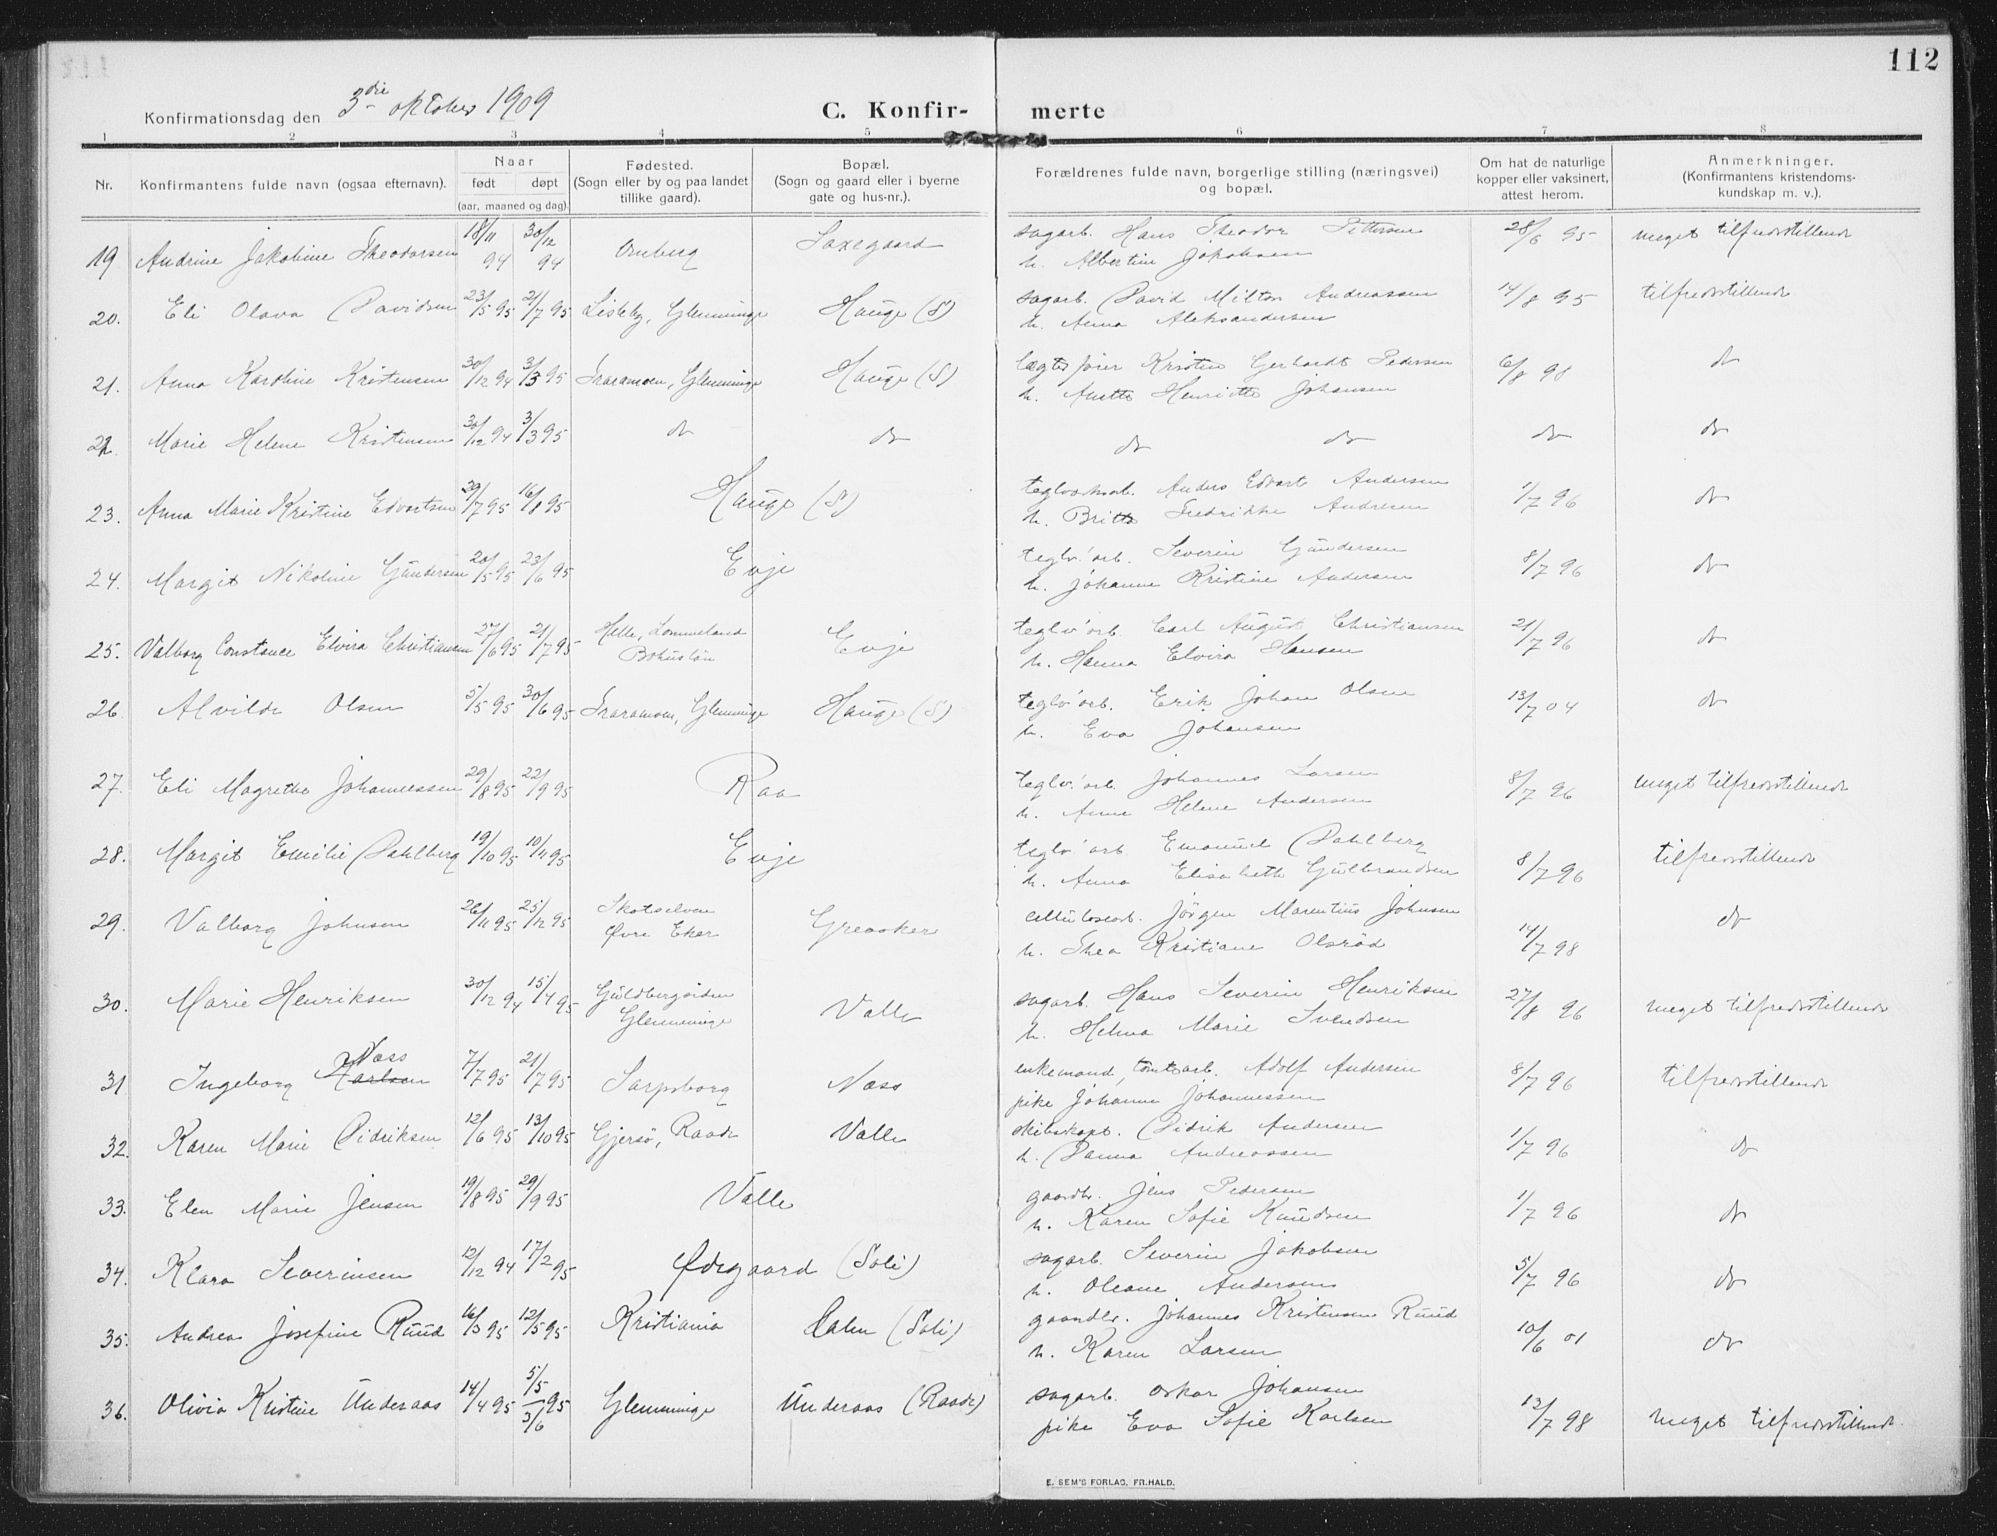 112
Konfirmationsdag den 3die oktober 1909
C. Konfir- merte
1 2 3 4 5 6 7 8
Nr. Konfirmantens fulde navn (ogsaa efternavn). Naar født døpt (aar, maaned og dag). Fødested. (Sogn eller by og paa landet tillike gaard). Bopæl. (Sogn og gaard eller i byerne gate og hus-nr.). Forældrenes fulde navn, borgerlige stilling (næringsvei) og bopæl. Om hat de naturlige kopper eller vaksinert, attest herom. Anmerkninger. (Konfirmantens kristendoms-kundskap m. v.).
19 Andrine Jakobine Theodorsen 18/11 94 30/12 94 Saxegaard sagarb. Hans Theodor Pettersen 28/6 95 meget tilfredsstillende
h. Albertine Jakobsen
20. Eli Olava Davidsen 23/5 95 21/7 95 Lisleby, Glemminge Hauge (S) sagarb. David Milton Andreassen 14/8 95 tilfredsstillende
h. Anna Aleksandersen
21. Anna Karoline Kristensen 30/12 94 3/3 95 Traramoen, Glemminge Hauge (S) lægtefører Kristen Gerhardt Pedersen 6/8 98 do
h. Anette Henriette Johansen
22. Marie Helene Kristensen 30/12 94 3/3 95 do do do do do do
23. Anna Marie Kristine Edvartsen 29/7 95 16/8 95 Hauge (S) teglverksarb. Anders Edvart Andersen 1/7 96 do
h. Britte Fredrikke Andresen
24. Margit Nikoline Gundersen 20/5 95 23/6 95 Evje teglv.arb. Severin Gundersen 8/7 96 do
h. Johanne Kristine Andersen
25. Valborg Constance Elvira Christiansen 27/6 95 21/7 95 Helle, Lommeland Bohuslän Evje teglv.arb. Carl August Christiansen 21/7 96 do
h. Hanna Elvira Hansen
26. Alvilde Olsen 5/5 95 30/6 95 Traramoen, Glemminge Hauge (S) teglv.arb. Erik Johan Olsen 13/7 04 do
h. Eva Johansen
27. Eli Magrethe Johannessen 29/8 95 22/9 95 Raa teglv.arb. Johannes Larsen 8/7 96 meget tilfredsstillende
h. Anne Helene Andersen
28. Margit Emilie Dahlberg 19/10 95 10/11 95 Evje teglv.arb. Emanuel Dahlberg 8/7 96 tilfredsstillende
h. Anna Elisabeth Gulbrandsen
29. Valborg Johnsen 26/11 95 25/12 95 Skotselven Øvre Eker Greaaker cellulosearb. Jørgen Marentius Johnsen 14/7 98 do
h. Thea Kristiane Olsrød
30. Marie Henriksen 30/12 94 15/4 95 Guldbergsiden Glemminge Valle sagarb. Hans Severin Henriksen 27/8 96 meget tilfredsstillende
h. Helma Marie Svendsen
31 Ingeborg Karlsen Næss 7/7 95 21/7 95 Sarpsborg Næss enkemand, tomtearb. Adolf Andersen 8/7 96 tilfredsstillende
pike Johanne Johannessen
32. Karen Marie Didriksen 12/6 95 13/10 95 Gjersø, Raade Valle skibskapt. Didrik Andersen 1/7 96 do
h. Danna Andreassen
33. Elen Marie Jensen 19/8 95 29/9 95 Valle gaardbr. Jens Pedersen 1/7 96 do
h. Karen Sofie Knudsen
34. Klara Severinsen 12/12 94 17/2 95 Ødegaard (Soli) sagarb. Severin Jakobsen 5/7 96 do
h. Oleane Andersen
35. Andrea Josefine Ruud 16/3 95 12/5 95 Kristiania Dalen (Soli) gaardbr. Johannes Kristensen Ruud 10/6 01 do
h. Karen Larsen
36. Olivia Kristine Underaas 14/4 95 5/5 3/6 95 Glemminge Underaas (Raade) sagarb. Oskar Johansen 12/7 98 meget tilfredsstillende
pike Eva Sofie Karlsen
E. SEM'S FORLAG, FR.HALD.